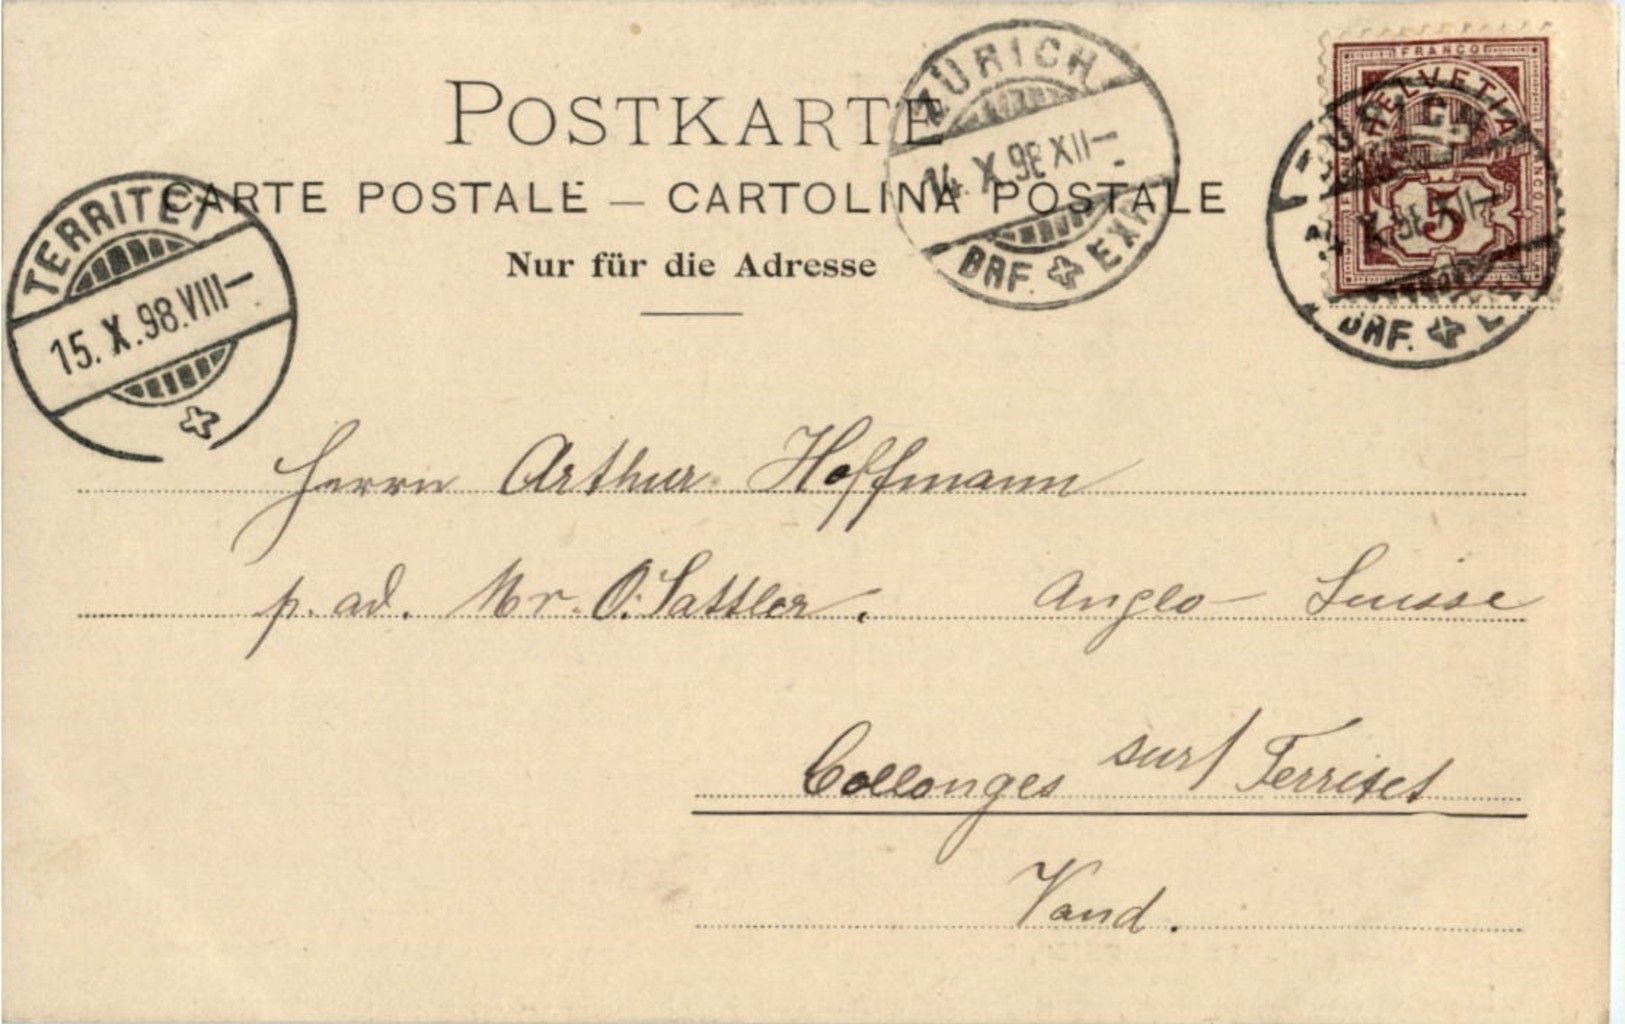 POSTKARTE
CARTE POSTALE — CARTOLINA POSTALE
Nur für die Adresse
ZÜRICH
14. X. 98 XII—
BRF. EXP.
FRANCO
HELVETIA
5
ZÜRICH
X. 98 XII—
BRF.
TERRITET
15. X. 98. VIII—
Herrn Arthur Hoffmann
p. ad. Mr. O. Sattler. Anglo-Suisse
Collonges sur/ Territet
Vaud.